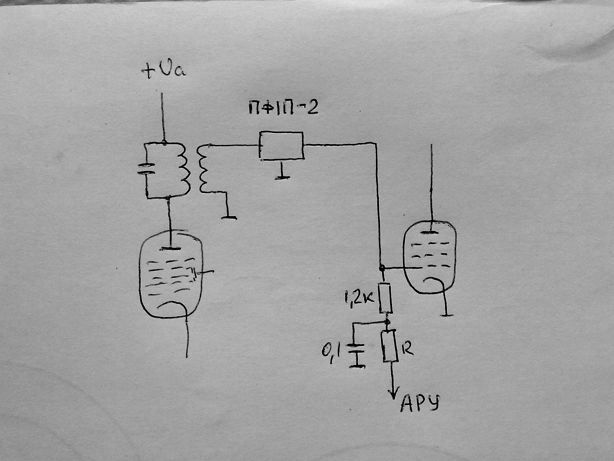 +Ua
ПФ1П-2
1,2к
0,1
R
АРУ